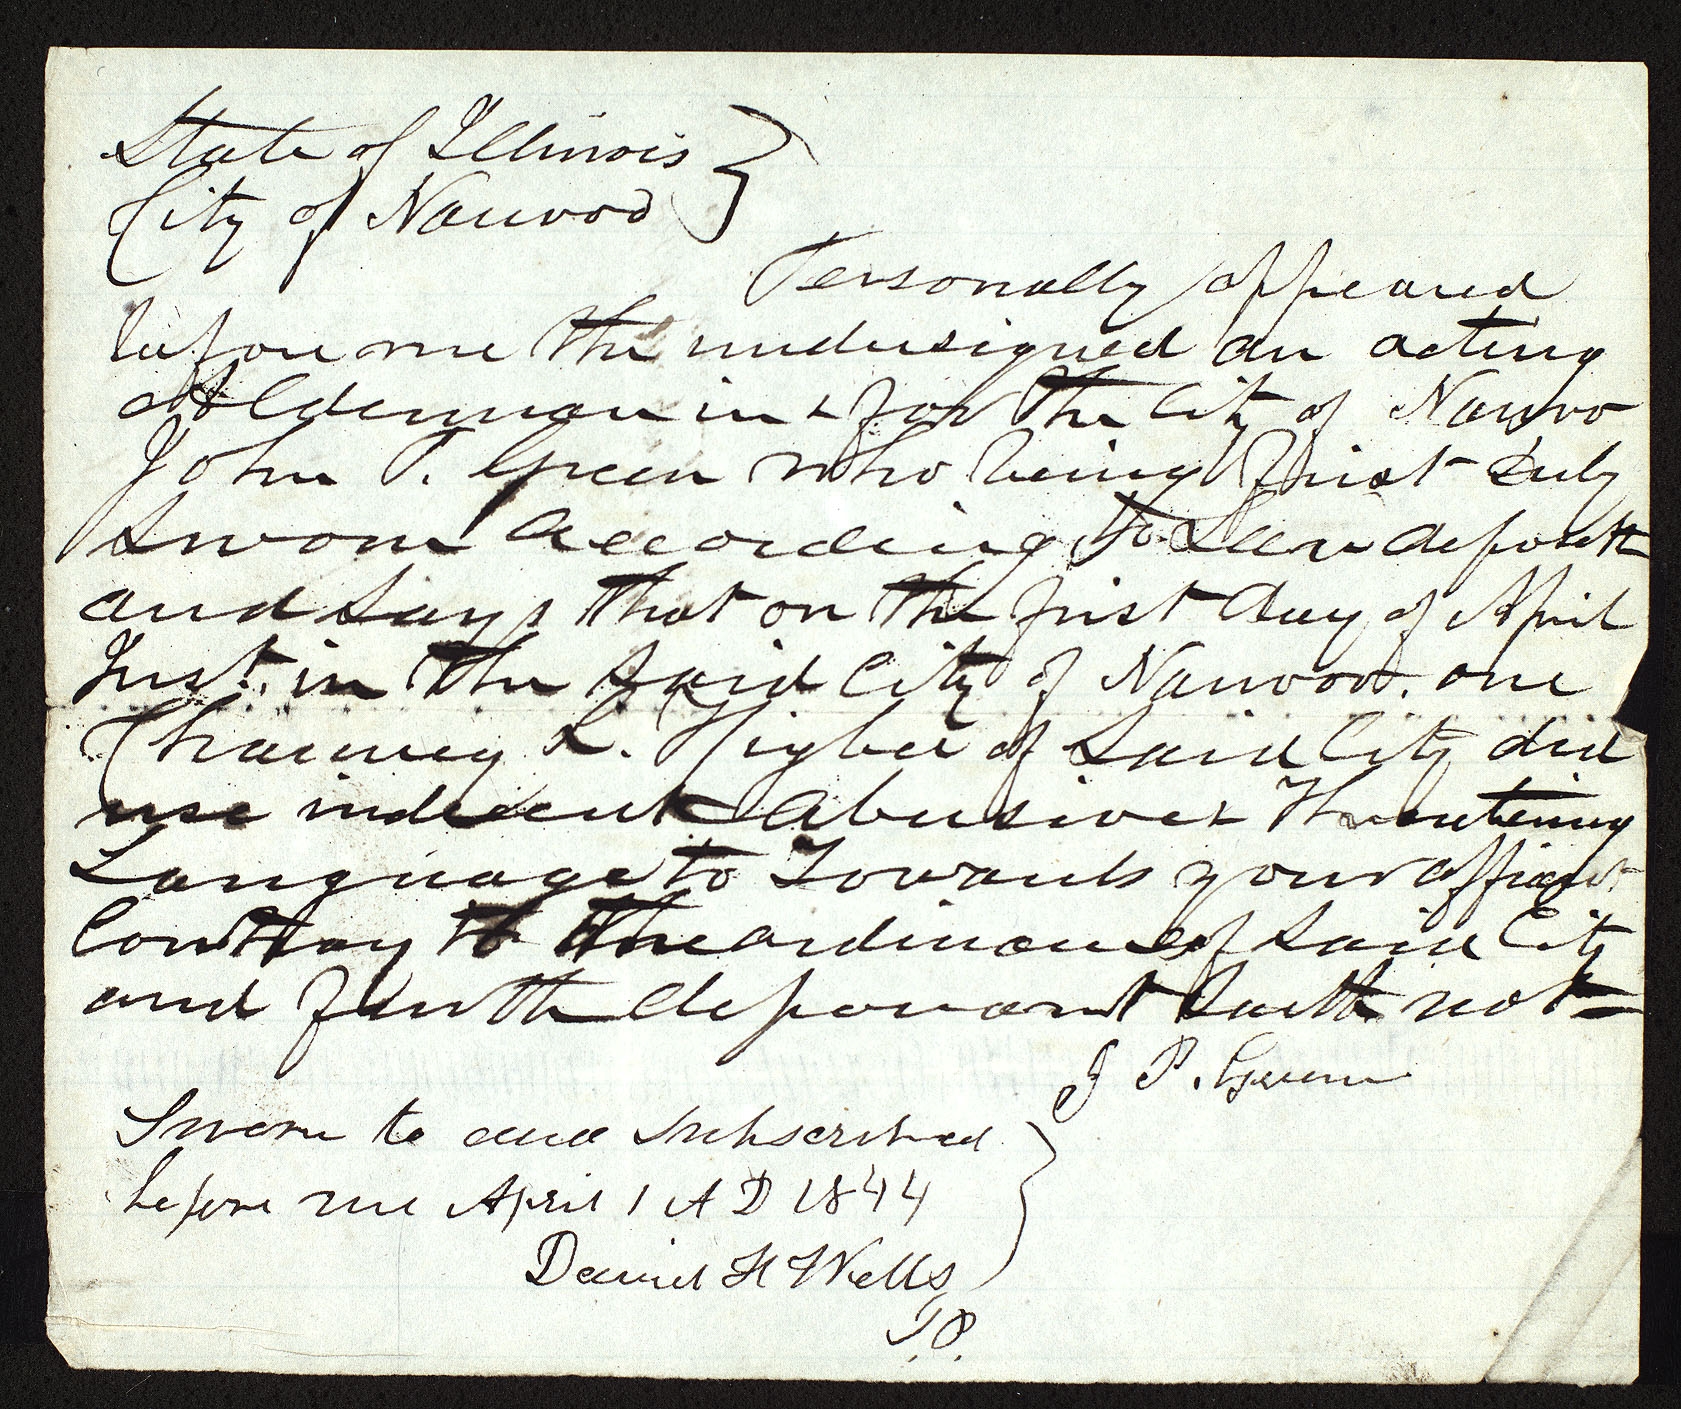 State of Illinois }
City of Nauvoo }
Personally appeared
before me the undersigned an acting
Alderman in & for the City of Nauvoo
John P. Green who being first duly
sworn according to Law deposeth
and says that on the first day of April
Inst. in the said City of Nauvoo. one
Chauncy L. Higbee of said City did
use indecent abusive & Threatening
Language to Towards your affiant
Contray to the ordinance of said City
and furth deponant saith not
J P. Green
Sworn to and subscribed }
before me April 1 A D 1844
Daniel H Wells
J.P.